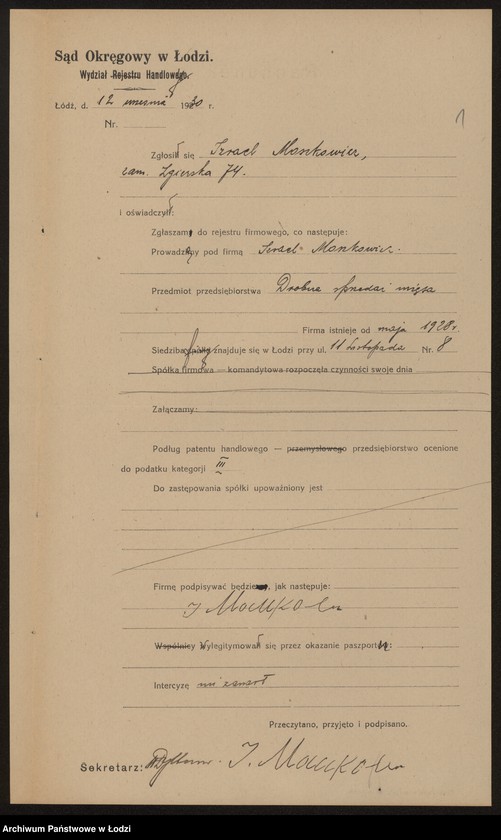 Sąd Okręgowy w Łodzi.
Wydział Rejestru Handlowego.
Łódź, d. 12 września 1930 r.
Nr.
1
Zgłosił się Izrael Mankowicz,
zam. Zgierska 74.
i oświadczył:
Zgłaszam do rejestru firmowego, co następuje:
Prowadzę pod firmą Izrael Mankowicz.
Przedmiot przedsiębiorstwa Drobna sprzedaż mięsa
Firma istnieje od maja 1928 r.
Siedziba firmy znajduje się w Łodzi przy ul. 11 Listopada Nr. 8
Spółka firmowa — komandytowa rozpoczęła czynności swoje dnia
Załączamy:
Podług patentu handlowego — przemysłowego przedsiębiorstwo ocenione
do podatku kategorji III
Do zastępowania spółki upoważniony jest
Firmę podpisywać będzie, jak następuje:
Wspólnicy Wylegitymował się przez okazanie paszportu:
Intercyzę nie zawarł
Przeczytano, przyjęto i podpisano.
Sekretarz:
Archiwum Państwowe w Łodzi